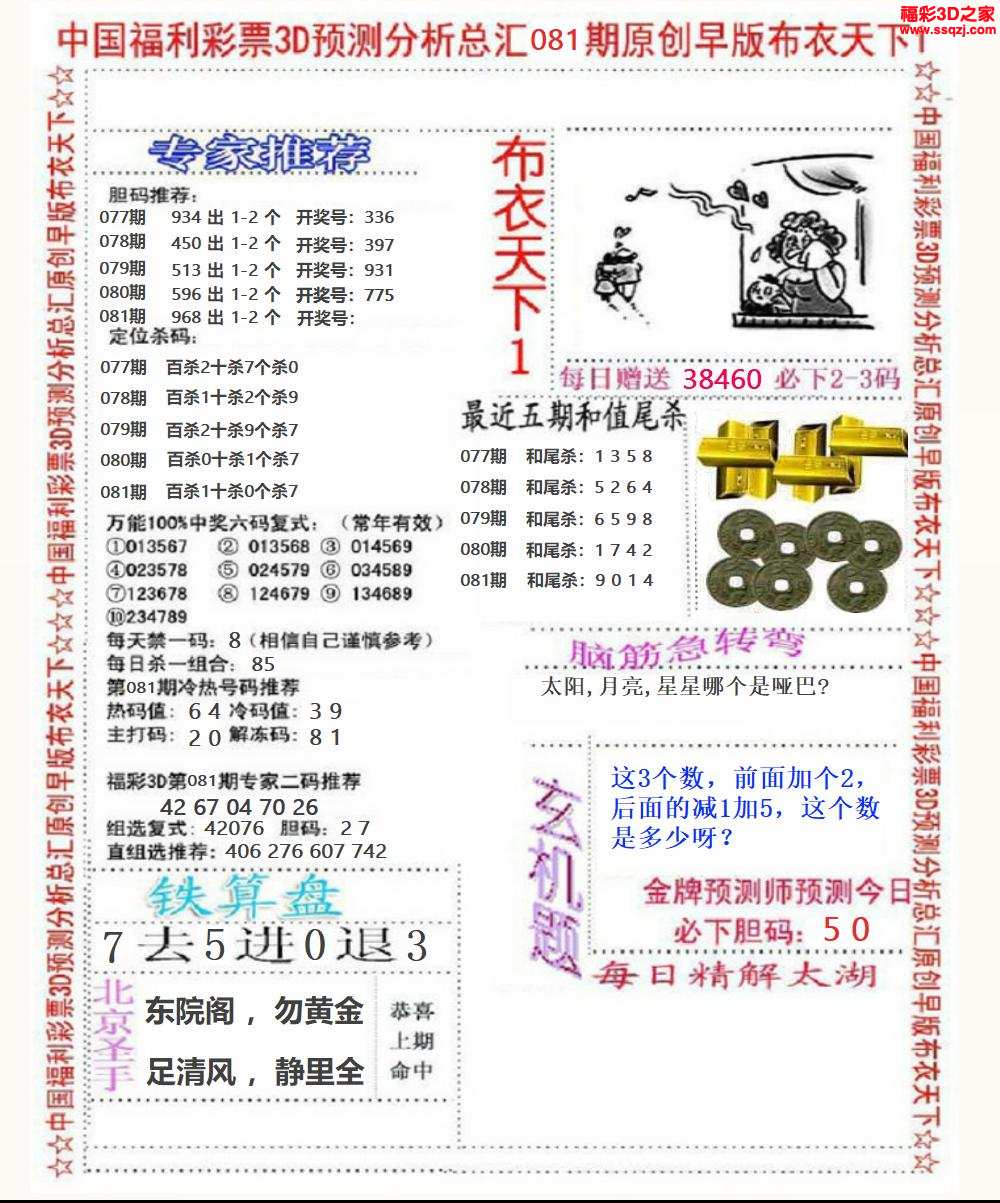 福彩3D之家
www.ssqzj.com
中国福利彩票3D预测分析总汇081期原创早版布衣天下1
☆☆中国福利彩票3D预测分析总汇原创早版布衣天下☆☆中国福利彩票3D预测分析总汇原创早版布衣天下☆☆
☆☆中国福利彩票3D预测分析总汇原创早版布衣天下☆☆☆中国福利彩票3D预测分析总汇原创早版布衣天下☆☆
专家推荐
胆码推荐：
077期 934 出 1-2 个 开奖号：336
078期 450 出 1-2 个 开奖号：397
079期 513 出 1-2 个 开奖号：931
080期 596 出 1-2 个 开奖号：775
081期 968 出 1-2 个 开奖号：
定位杀码：
077期 百杀2十杀7个杀0
078期 百杀1十杀2个杀9
079期 百杀2十杀9个杀7
080期 百杀0十杀1个杀7
081期 百杀1十杀0个杀7
万能100%中奖六码复式：（常年有效）
①013567 ② 013568 ③ 014569
④023578 ⑤ 024579 ⑥ 034589
⑦123678 ⑧ 124679 ⑨ 134689
⑩234789
每天禁一码：8（相信自己谨慎参考）
每日杀一组合：85
第081期冷热号码推荐
热码值：6 4 冷码值：3 9
主打码：2 0 解冻码：8 1
福彩3D第081期专家二码推荐
42 67 04 70 26
组选复式：42076 胆码：2 7
直组选推荐：406 276 607 742
铁算盘
7去5进0退3
北京圣手
东院阁，勿黄金
足清风，静里全
恭喜
上期
命中
布衣天下1
每日赠送 38460 必下2-3码
最近五期和值尾杀
077期 和尾杀：1 3 5 8
078期 和尾杀：5 2 6 4
079期 和尾杀：6 5 9 8
080期 和尾杀：1 7 4 2
081期 和尾杀：9 0 1 4
脑筋急转弯
太阳,月亮,星星哪个是哑巴?
玄机题
这3个数，前面加个2，
后面的减1加5，这个数
是多少呀？
金牌预测师预测今日
必下胆码：5 0
每日精解太湖